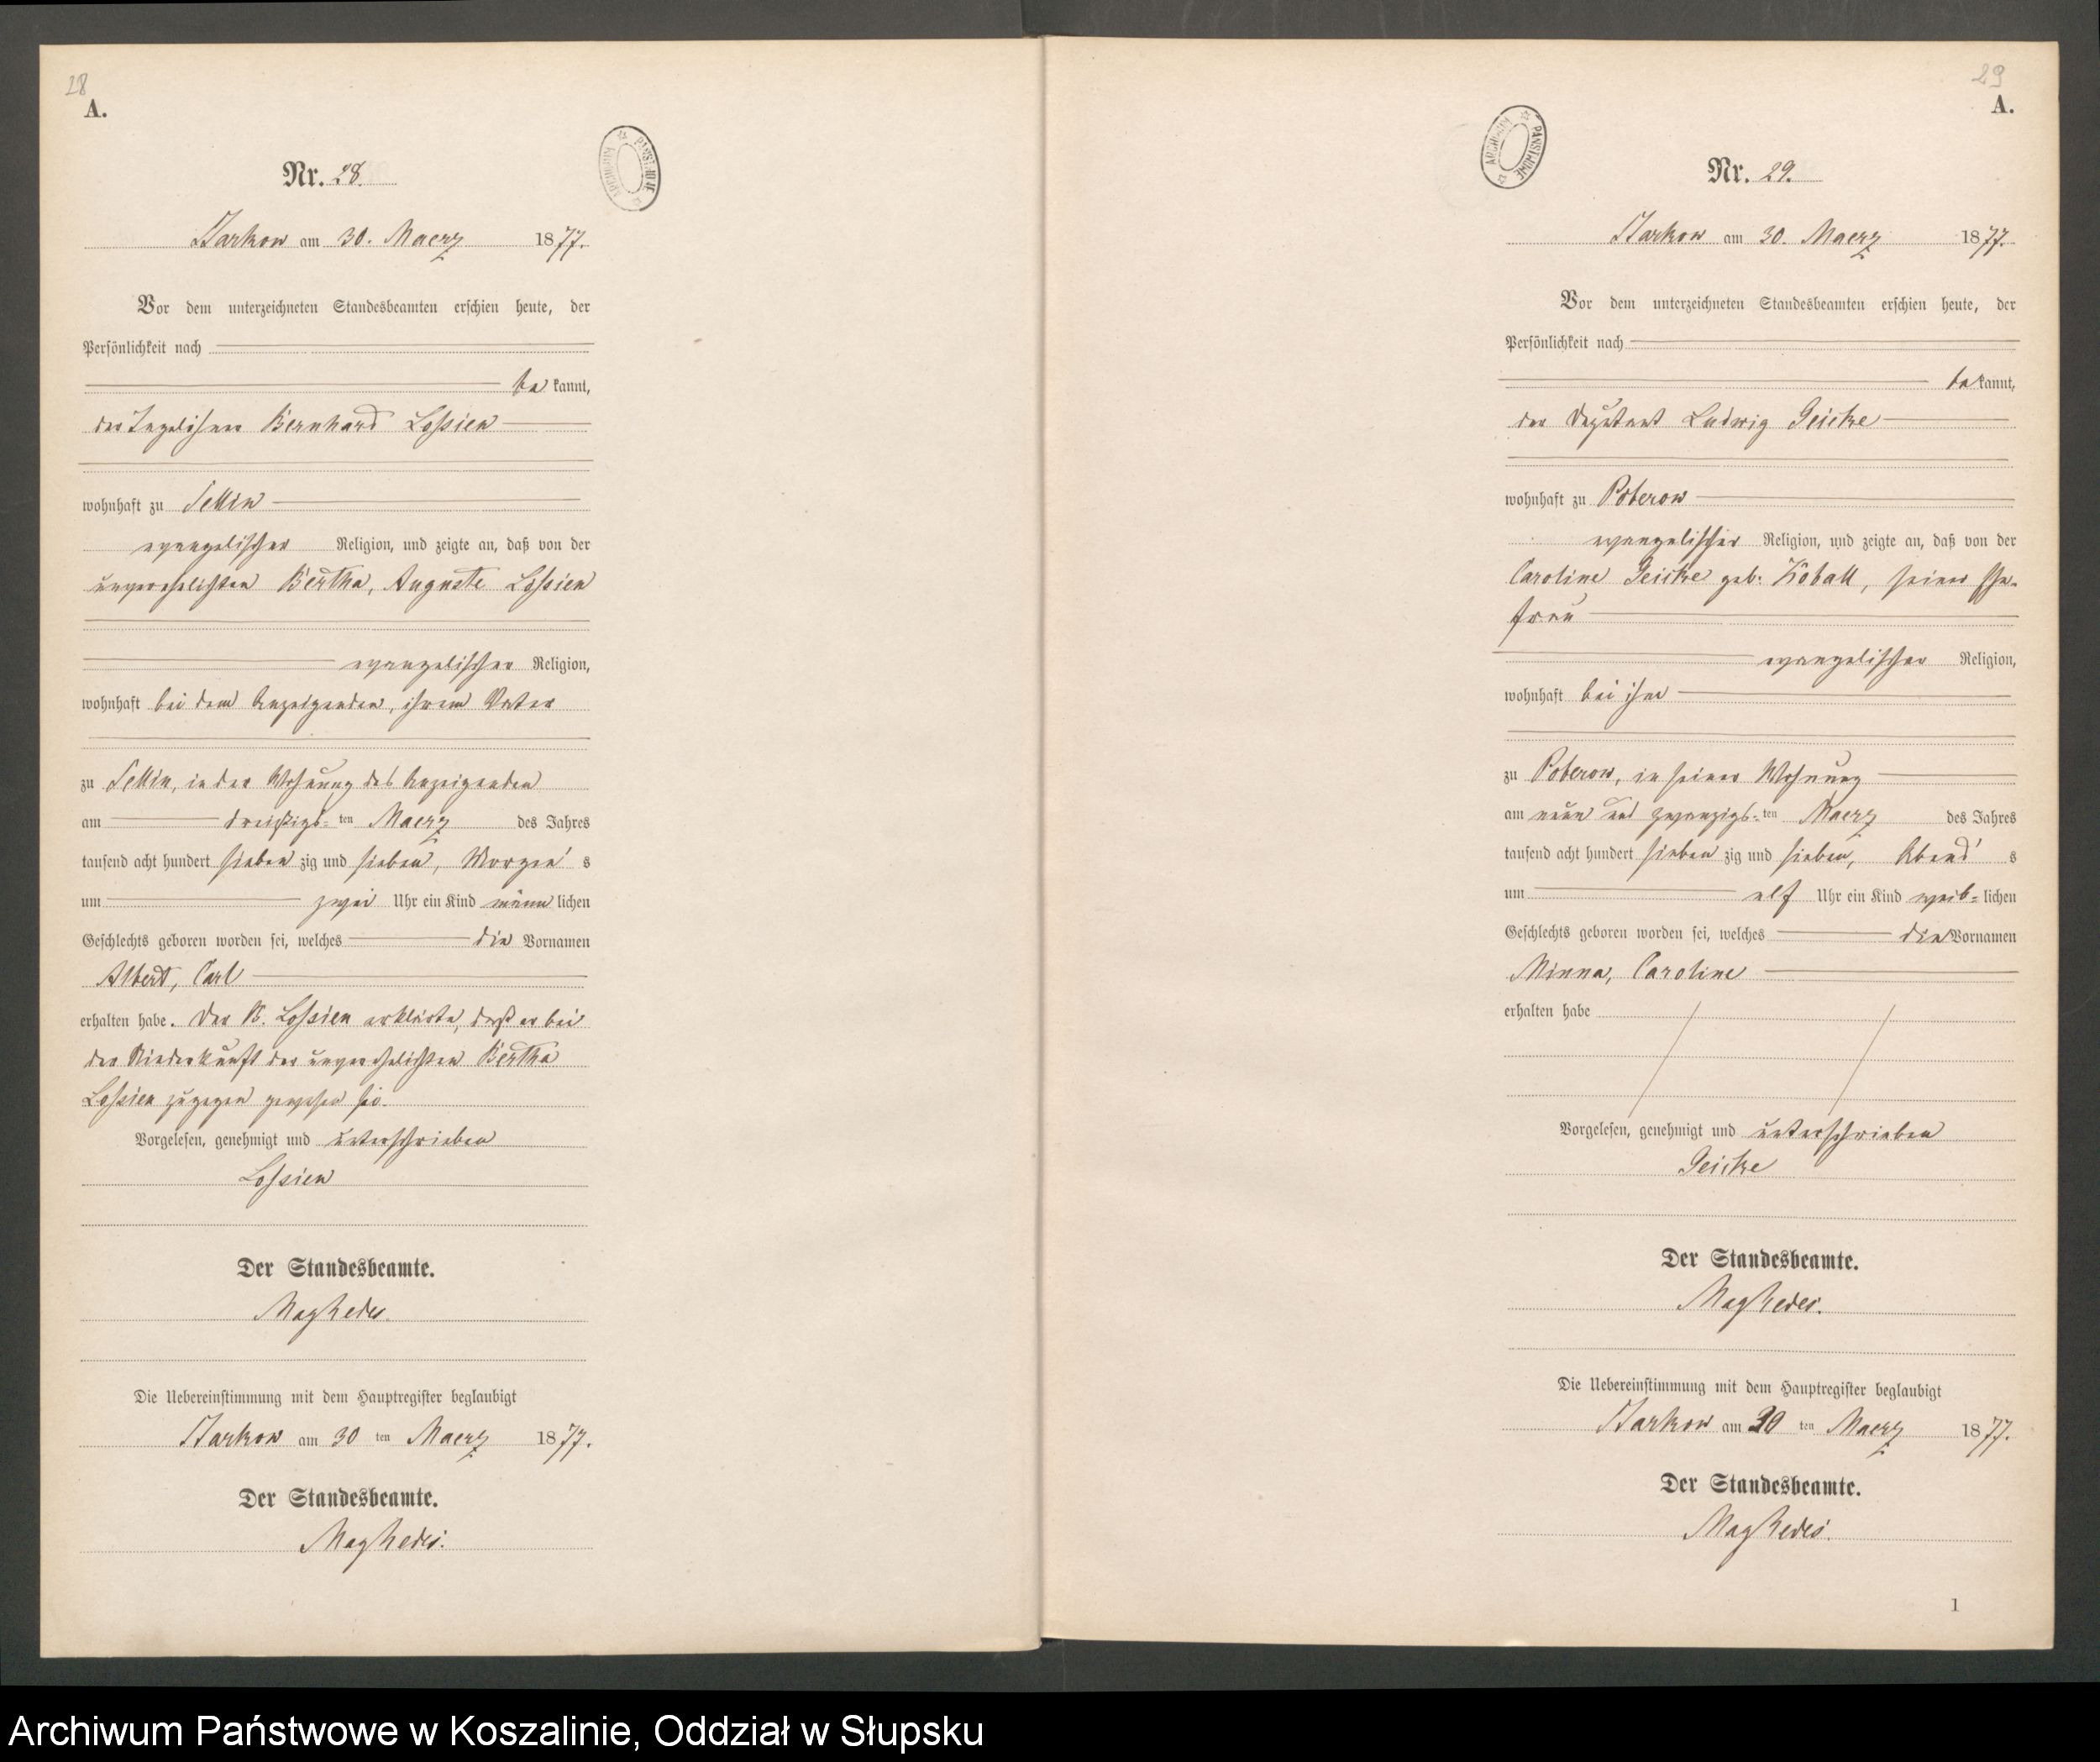 28
A.
Nr. 28.
ARCHIWUM PAŃSTWOWE
Starkow am 30. Maerz 1877.
Vor dem unterzeichneten Standesbeamten erschien heute, der
Persönlichkeit nach
be kannt,
der Tagelöhner Bernhard Lossien
wohnhaft zu
evangelischer Religion, und zeigte an, daß von der
unverehelichten Bertha, Auguste Lossien
evangelischer Religion,
wohnhaft bei dem Anzeigenden, ihrem Vater
zu in der Wohnung des Anzeigenden
am dreißigs- ten Maerz des Jahres
tausend acht hundert sieben zig und sieben, Morgen s
um zwei Uhr ein Kind männ lichen
Geschlechts geboren worden sei, welches die Vornamen
Albert, Carl
erhalten habe. Der B. Lossien erklärte, daß er bei
der Niederkunft der unverehelichten Bertha
Lossien zugegen gewesen sei.
Vorgelesen, genehmigt und unterschrieben
Lossien
Der Standesbeamte.
Die Uebereinstimmung mit dem Hauptregister beglaubigt
Starkow am 30 ten Maerz 1877.
Der Standesbeamte.
29
A.
ARCHIWUM PAŃSTWOWE
Nr. 29.
Starkow am 30. Maerz 1877.
Vor dem unterzeichneten Standesbeamten erschien heute, der
Persönlichkeit nach
be kannt,
der Deputant Ludwig Geicke
wohnhaft zu Poberow
evangelischer Religion, und zeigte an, daß von der
Caroline Geicke geb. Koball, seiner Ehe-
frau
evangelischer Religion,
wohnhaft bei ihm
zu Poberow, in seiner Wohnung
am neun und zwanzigs- ten Maerz des Jahres
tausend acht hundert sieben zig und sieben, Abend s
um elf Uhr ein Kind weib- lichen
Geschlechts geboren worden sei, welches die Vornamen
Minna, Caroline
erhalten habe
Vorgelesen, genehmigt und unterschrieben
Geicke
Der Standesbeamte.
Die Uebereinstimmung mit dem Hauptregister beglaubigt
Starkow am 30 ten Maerz 1877.
Der Standesbeamte.
1
Archiwum Państwowe w Koszalinie, Oddział w Słupsku